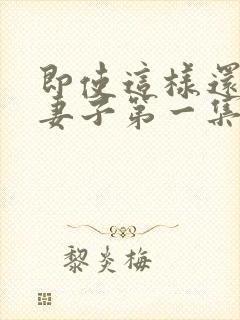 即使這樣還
妻子第一集
黎炎梅